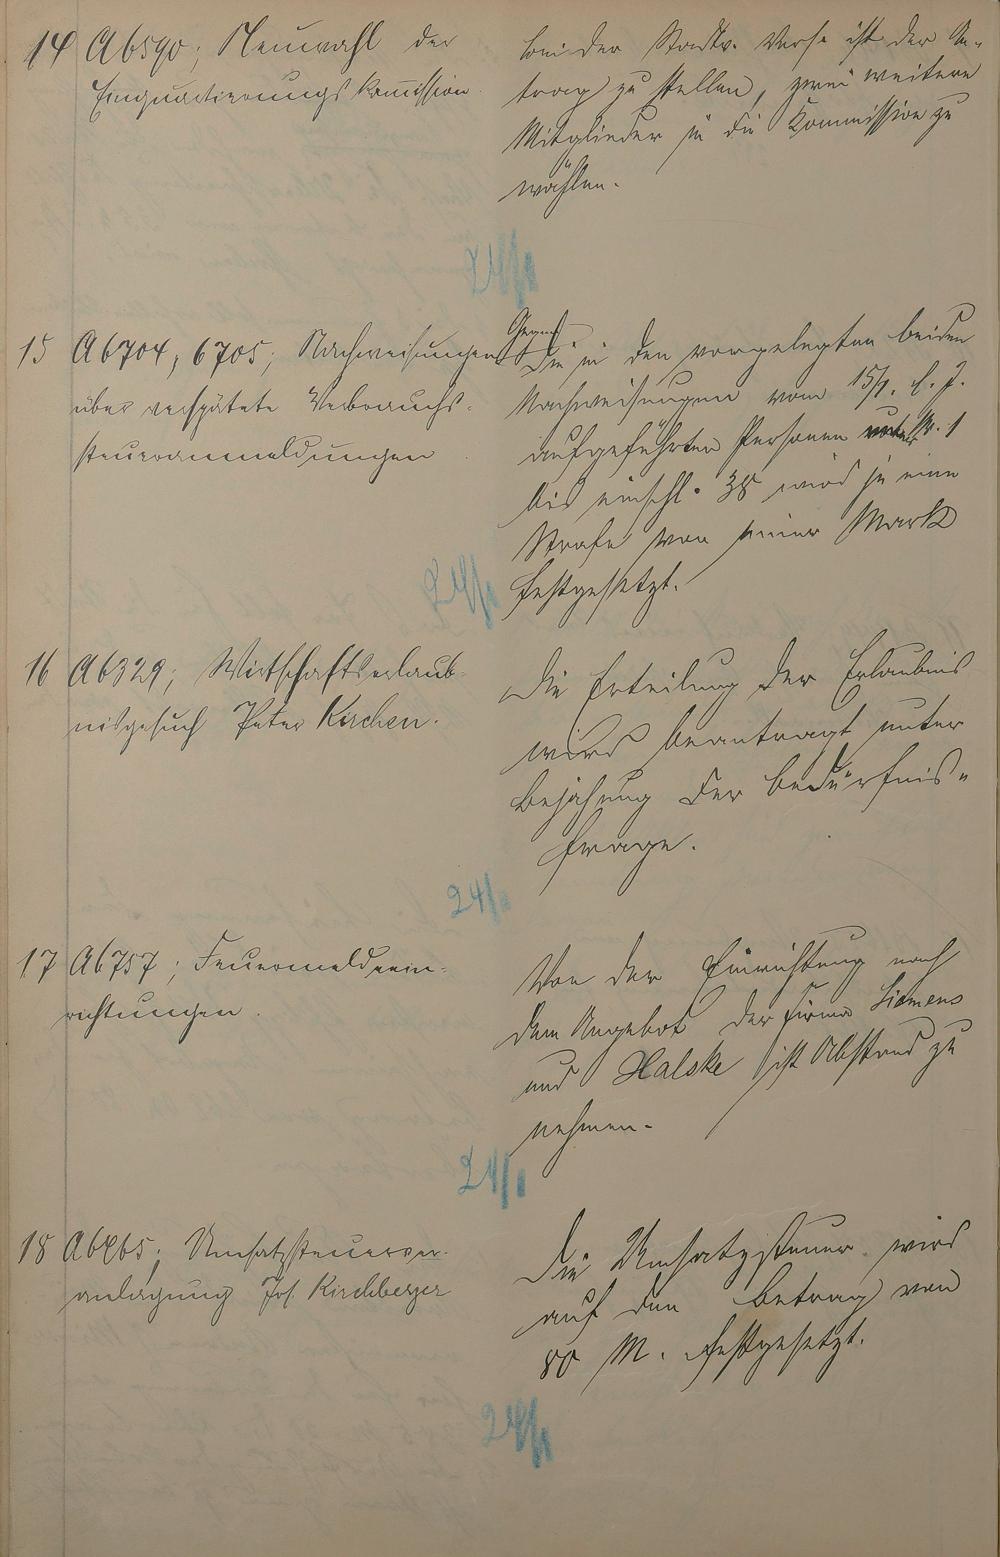 14 A6590; Neuwahl der
Einquartierungskomission
bei der Stadtv. Vers. ist der An-
trag zu stellen, zwei weitere
Mitglieder in die Kommission zu
wählen.
24/1
15 A6704, 6705; Nachweisungen
über verspätete Verbrauchs-
steueranmeldungen
Gegen
Die in den vorgelegten beiden
Nachweisungen vom 15/1. l. J.
aufgeführten Personen unter Nr. 1
bis einschl. 38 wird je eine
Strafe von einer Mark
festgesetzt.
24/1
16 A6329; Wirtschaftserlaub-
nisgesuch Peter Kirchen.
Die Erteilung der Erlaubnis
wird beantragt unter
Bejahung der Bedürfnis-
frage.
24/1
17 A6757; Feuermeldeein-
richtungen.
Von der Einrichtung nach
dem Angebot der Firma Siemens
und Halske ist Abstand zu
nehmen.
24/1
18 Umsatzsteuerver-
anlagung Jos. Kirchberger
Die Umsatzsteuer wird
auf den Betrag von
80 M. festgesetzt.
24/1